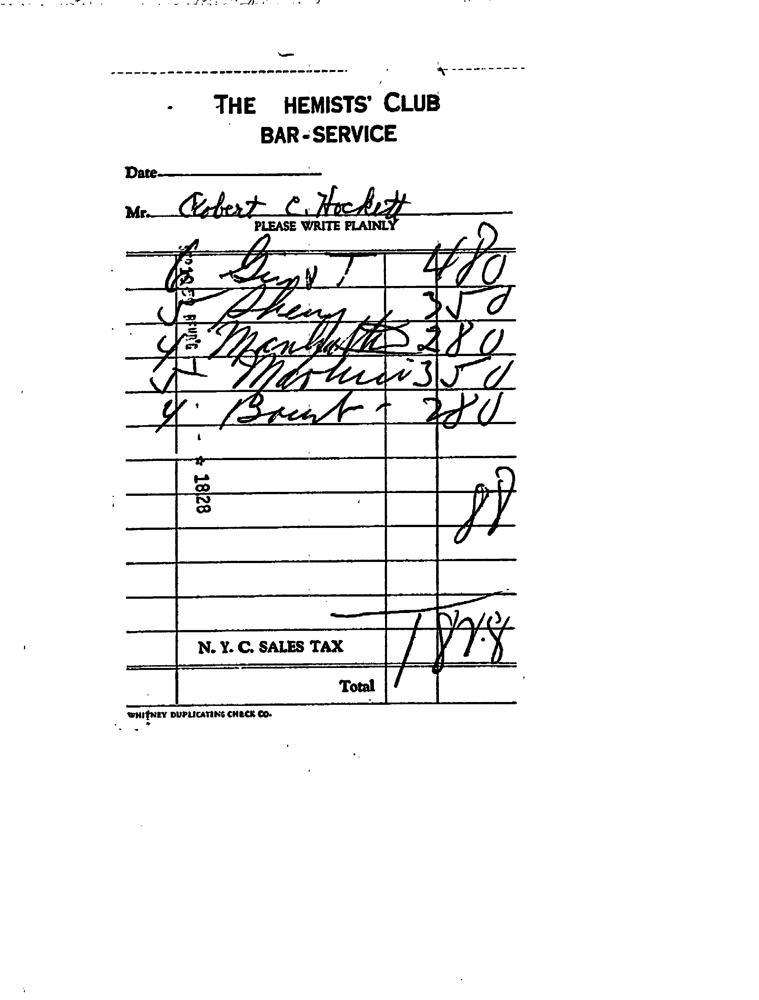 THE HEMISTS' CLUB
BAR-SERVICE
Date
Mr. Robert C. Hockett
PLEASE WRITE PLAINLY
6 Gin & T 4 80
5 Sherry 3 50
4 Manhattan 2 80
5 Martini 3 50
4 Bourb - 2 80
88
1828
N. Y. C. SALES TAX
18 28
Total
WHITNEY DUPLICATING CHECK CO.